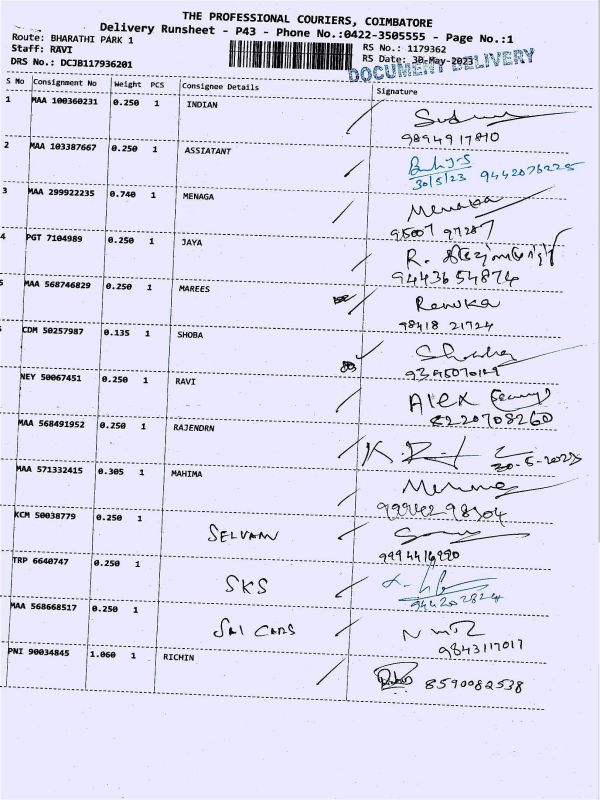 THE PROFESSIONAL COURIERS, COIMBATORE
Delivery Runsheet - P43 - Phone No.:0422-3505555 - Page No.:1
Route: BHARATHI PARK 1
Staff: RAVI
DRS No.: DCJB117936201
RS No.: 1179362
RS Date: 30-May-2023
DOCUMENT DELIVERY
S No Consignment No Weight PCS Consignee Details Signature
1 MAA 100360231 0.250 1 INDIAN
9894917810
2 MAA 103387667 0.250 1 ASSIATANT
30/5/23 9442076225
3 MAA 299922235 0.740 1 MENAGA Menaka
95007 97287
4 PGT 7104989 0.250 1 JAYA R.
9443654874
5 MAA 568746829 0.250 1 MAREES Renuka
98418 21724
CDM 50257987 0.135 1 SHOBA
NEY 50067451 0.250 1 RAVI Alex
8220708260
MAA 568491952 0.250 1 RAJENDRN
30-5-2023
MAA 571332415 0.305 1 MAHIMA
99942 98304
KCM 50038779 0.250 1 SELVAM
TRP 6640747 0.250 1 SKS
944202824
MAA 568668517 0.250 1 SAI CARS
9843117017
PNI 90034845 1.060 1 RICHIN 8590082538